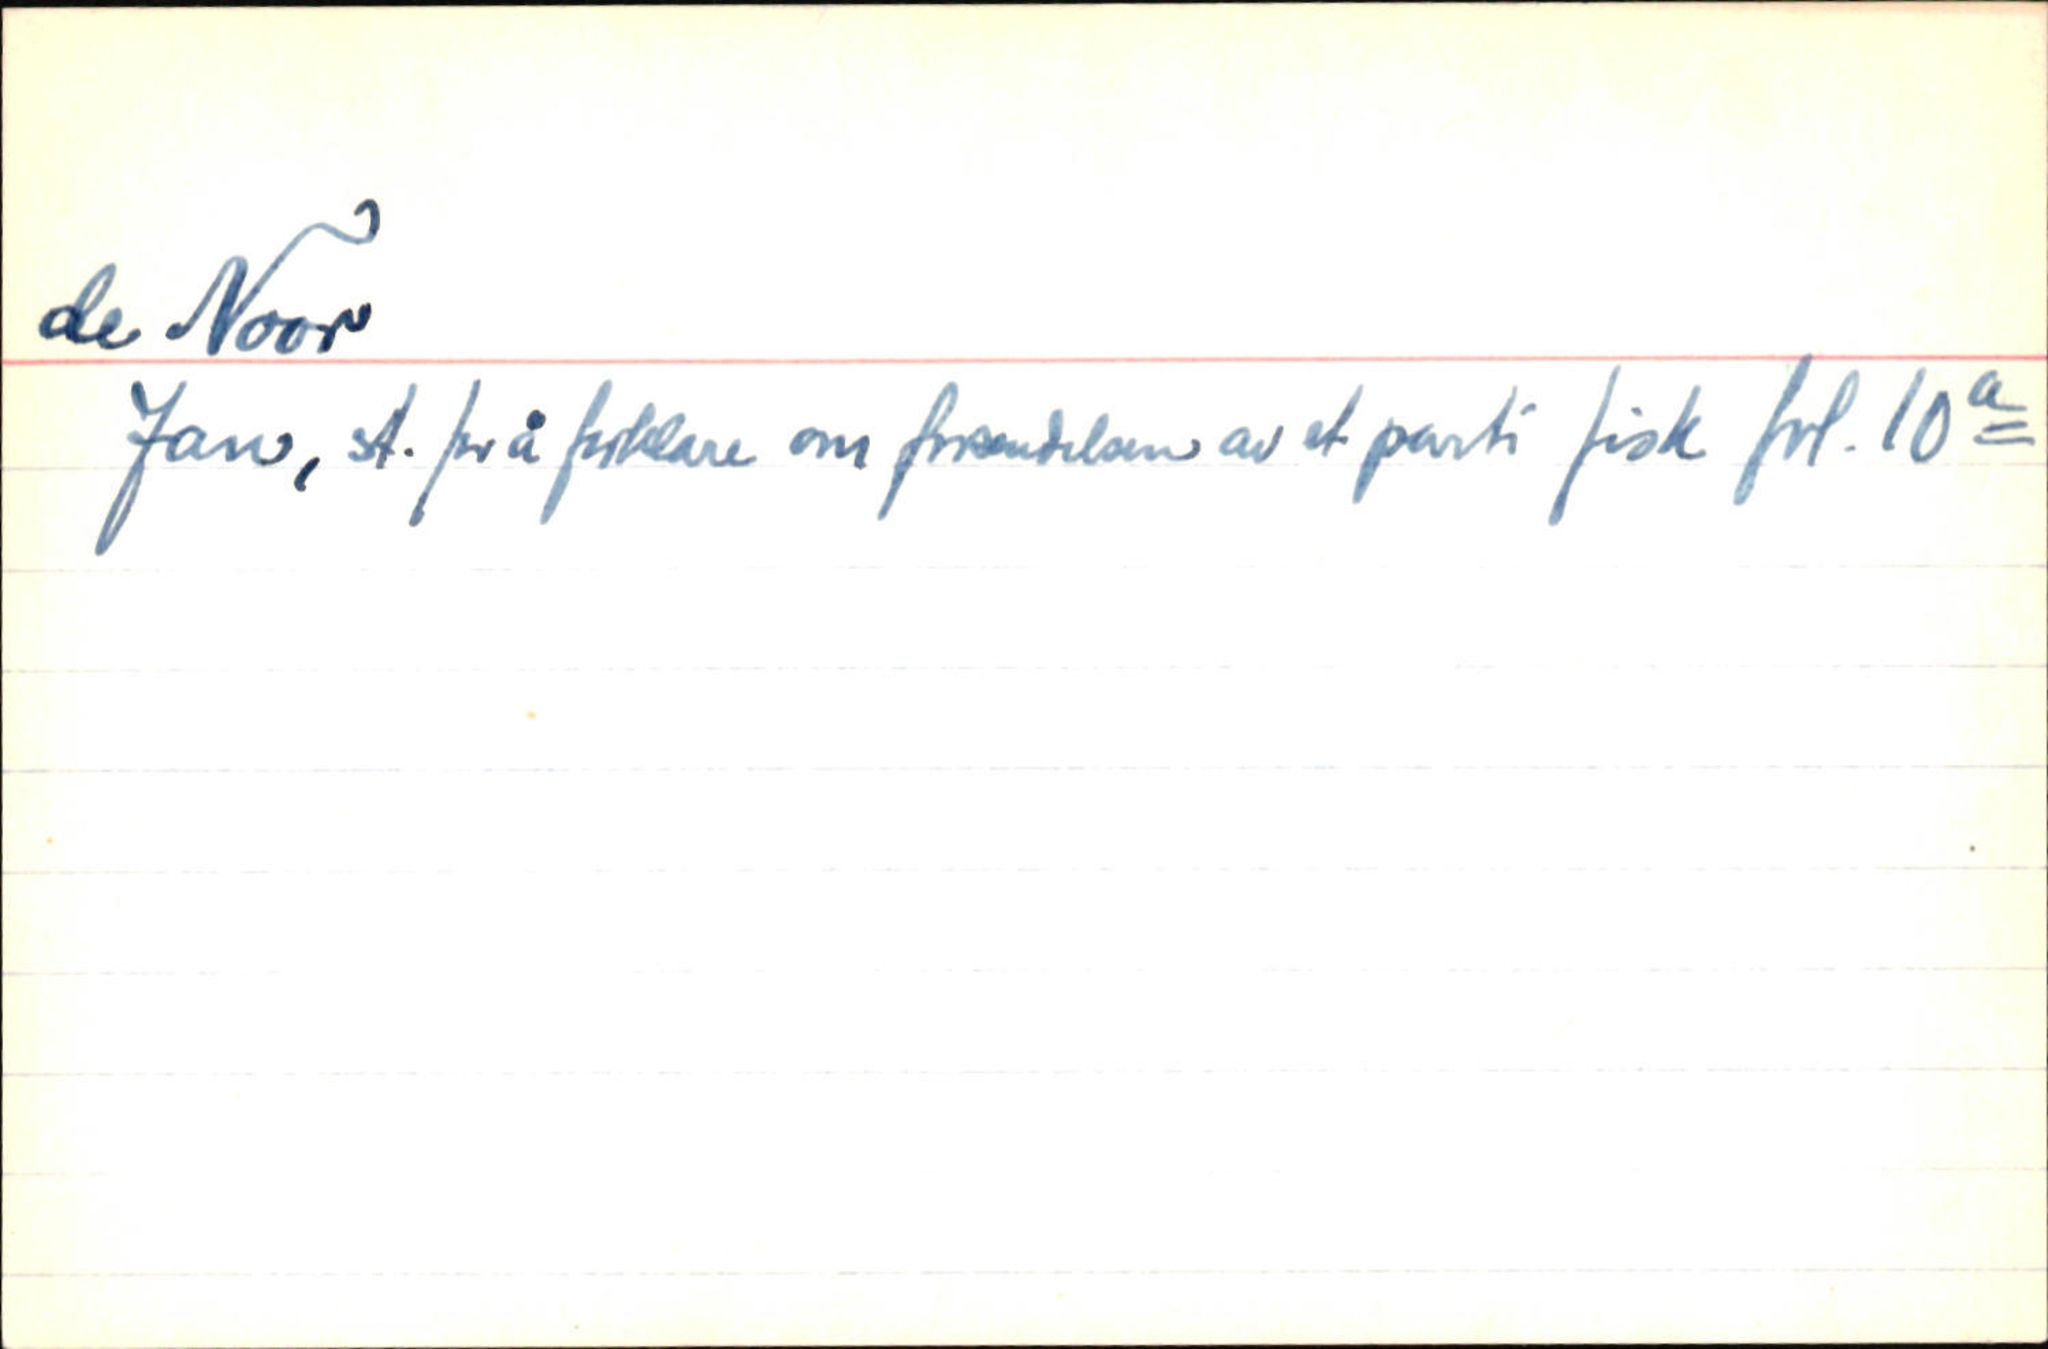 de Noor
Jan, st. for å forklare om forsendelsen av et parti fisk fol. 10a